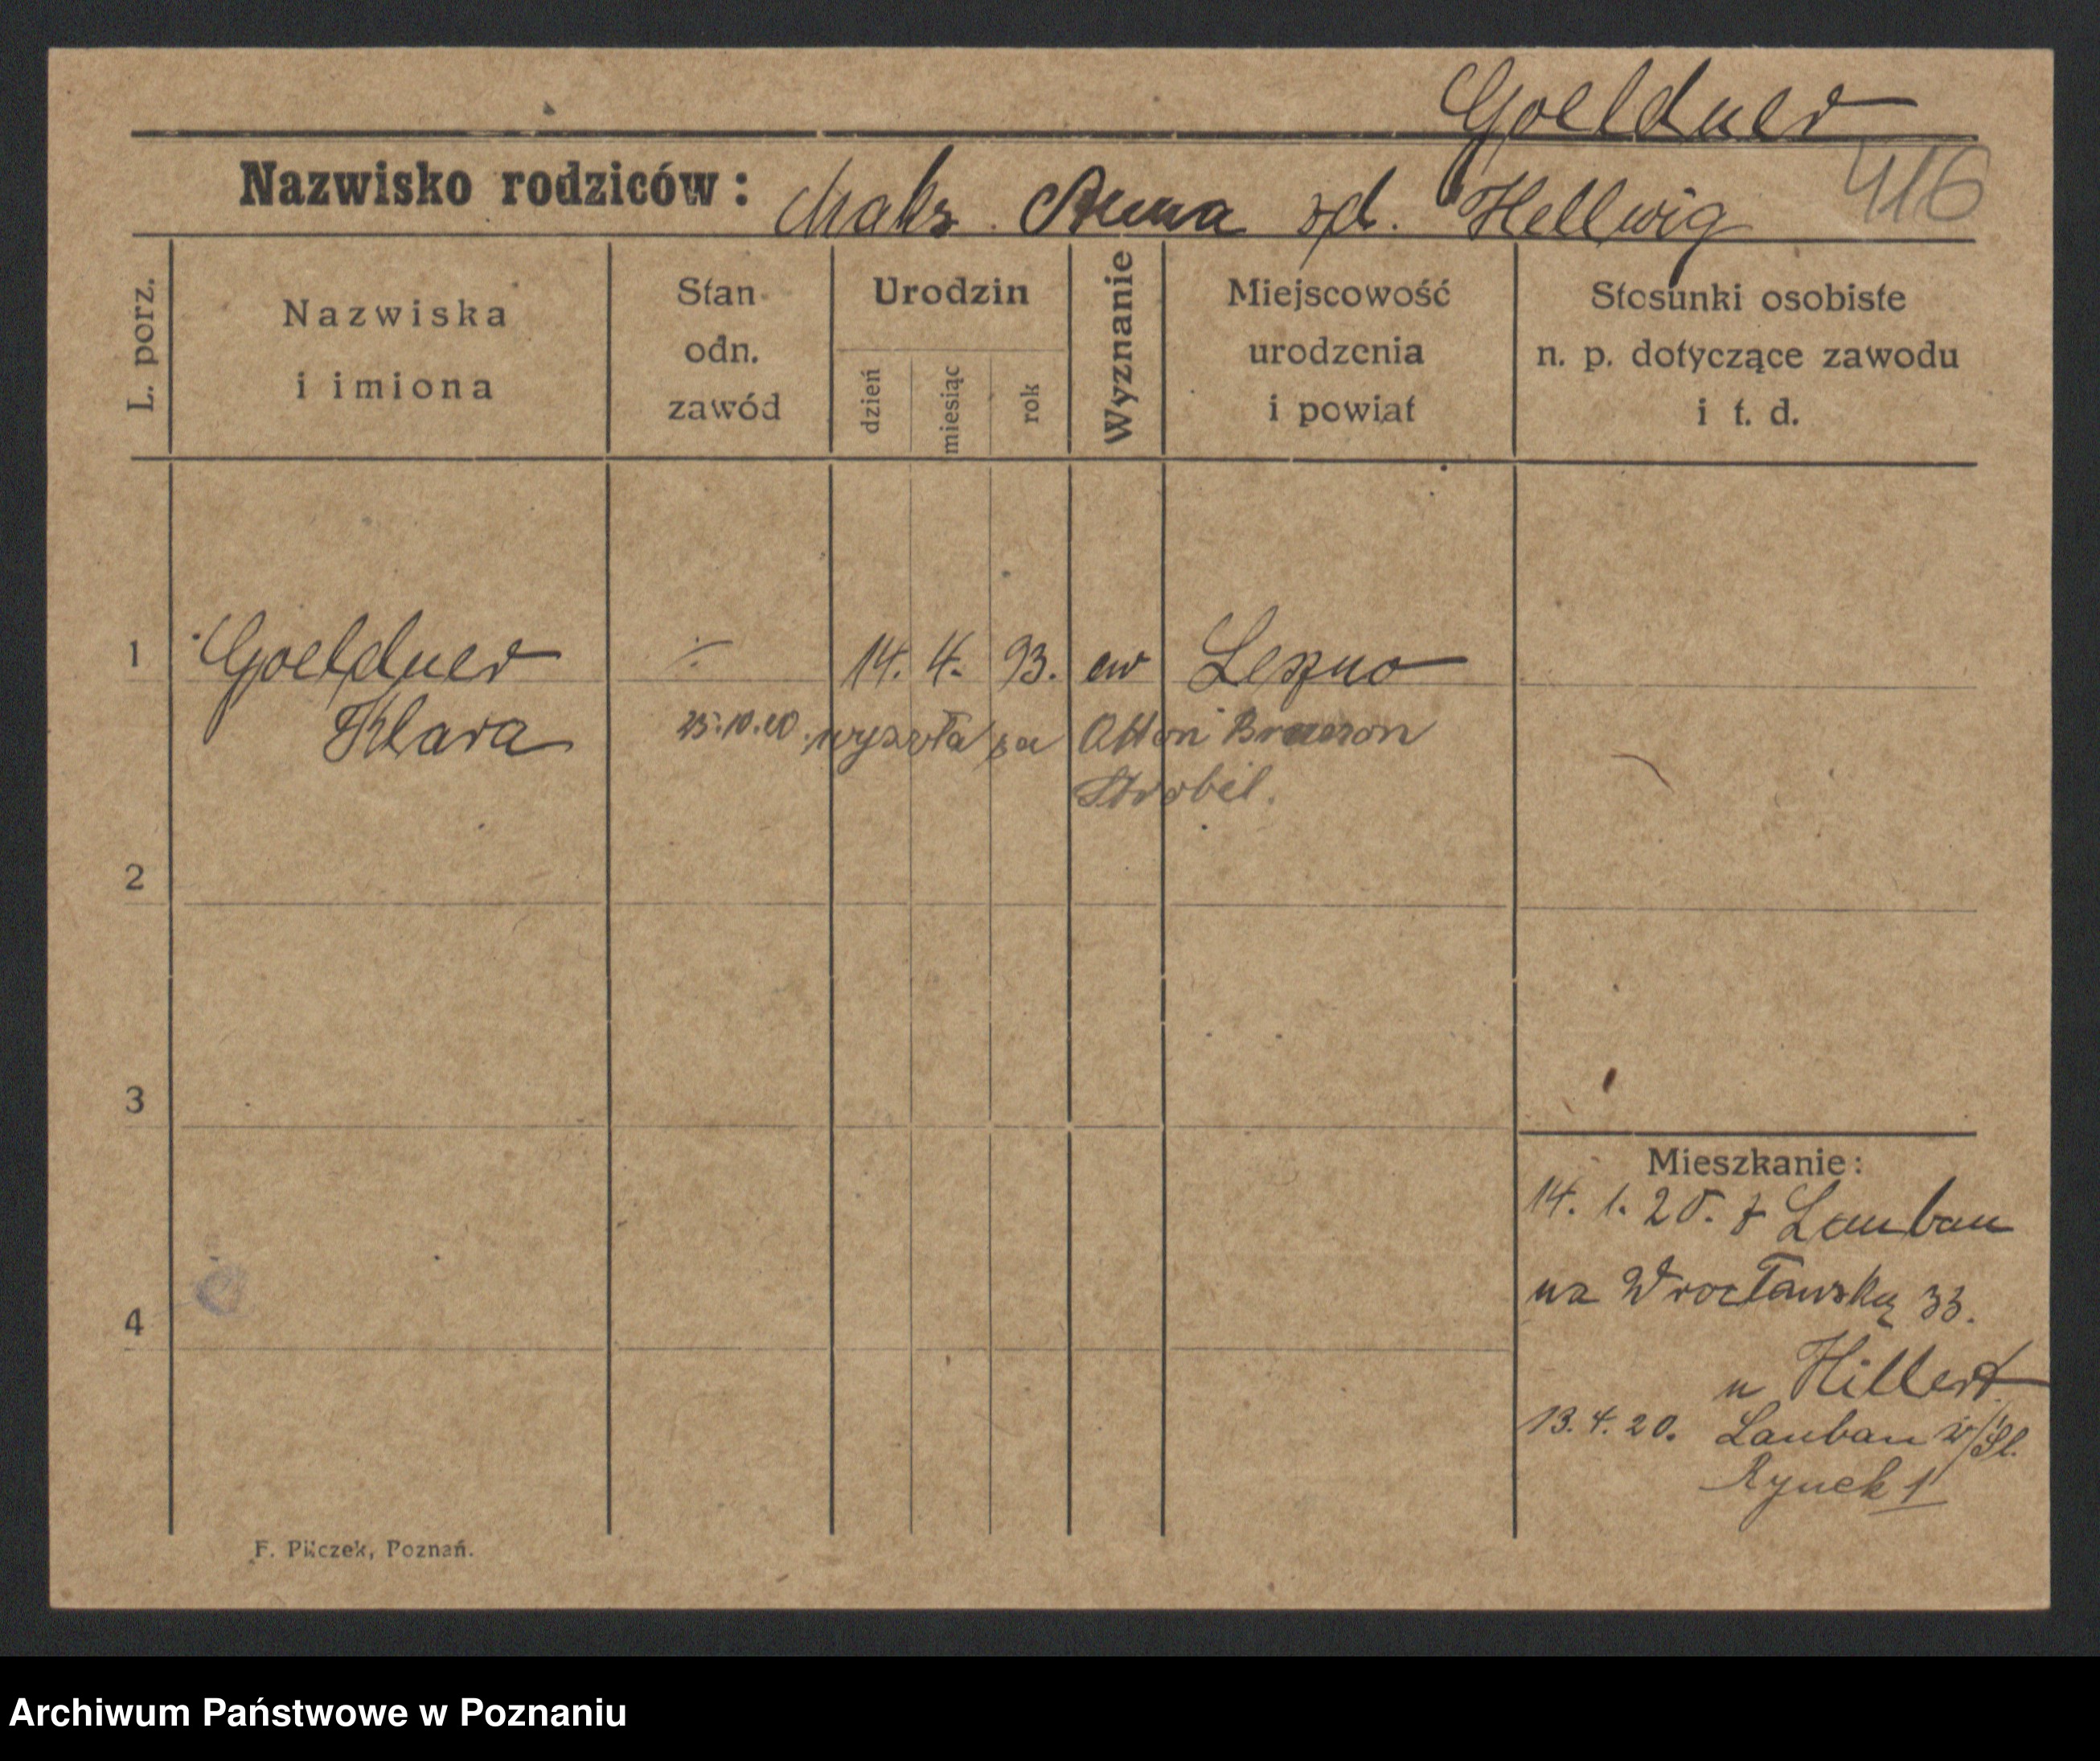 Goeldner
Nazwisko rodziców: Maks Anna zd. Hellwig
416
L. porz.
Nazwiska
i imiona
Stan
odn.
zawód
Urodzin
dzień
miesiąc
rok
Wyznanie
Miejscowość
urodzenia
i powiat
Stosunki osobiste
n. p. dotyczące zawodu
i t. d.
1 Goeldner ÷ 14. 4. 93. ew Leszno
Klara 25.10.20. wyszła za Otton
Strobel.
2
3
4
Mieszkanie:
14. 1. 20. z Lauban
na Wrocławską 33.
u Hillert
13.4.20. Lauban w/Śl.
Rynek 1
F. Pilczek, Poznań.
Archiwum Państwowe w Poznaniu